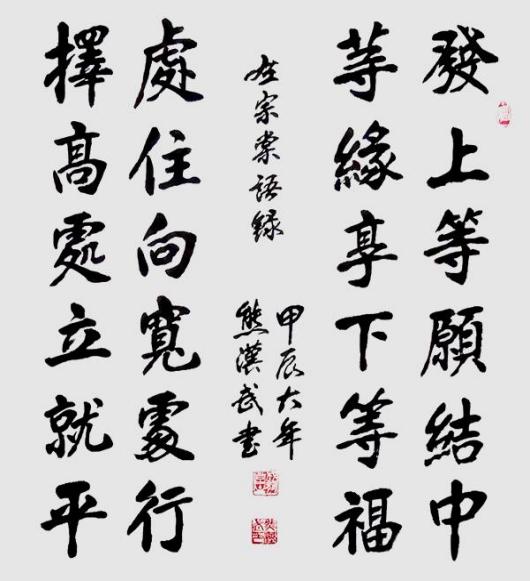 發上等願結中
等緣享下等福
擇高處立就平
處住向寬處行
左宗棠語録
甲辰大年
熊漢武書